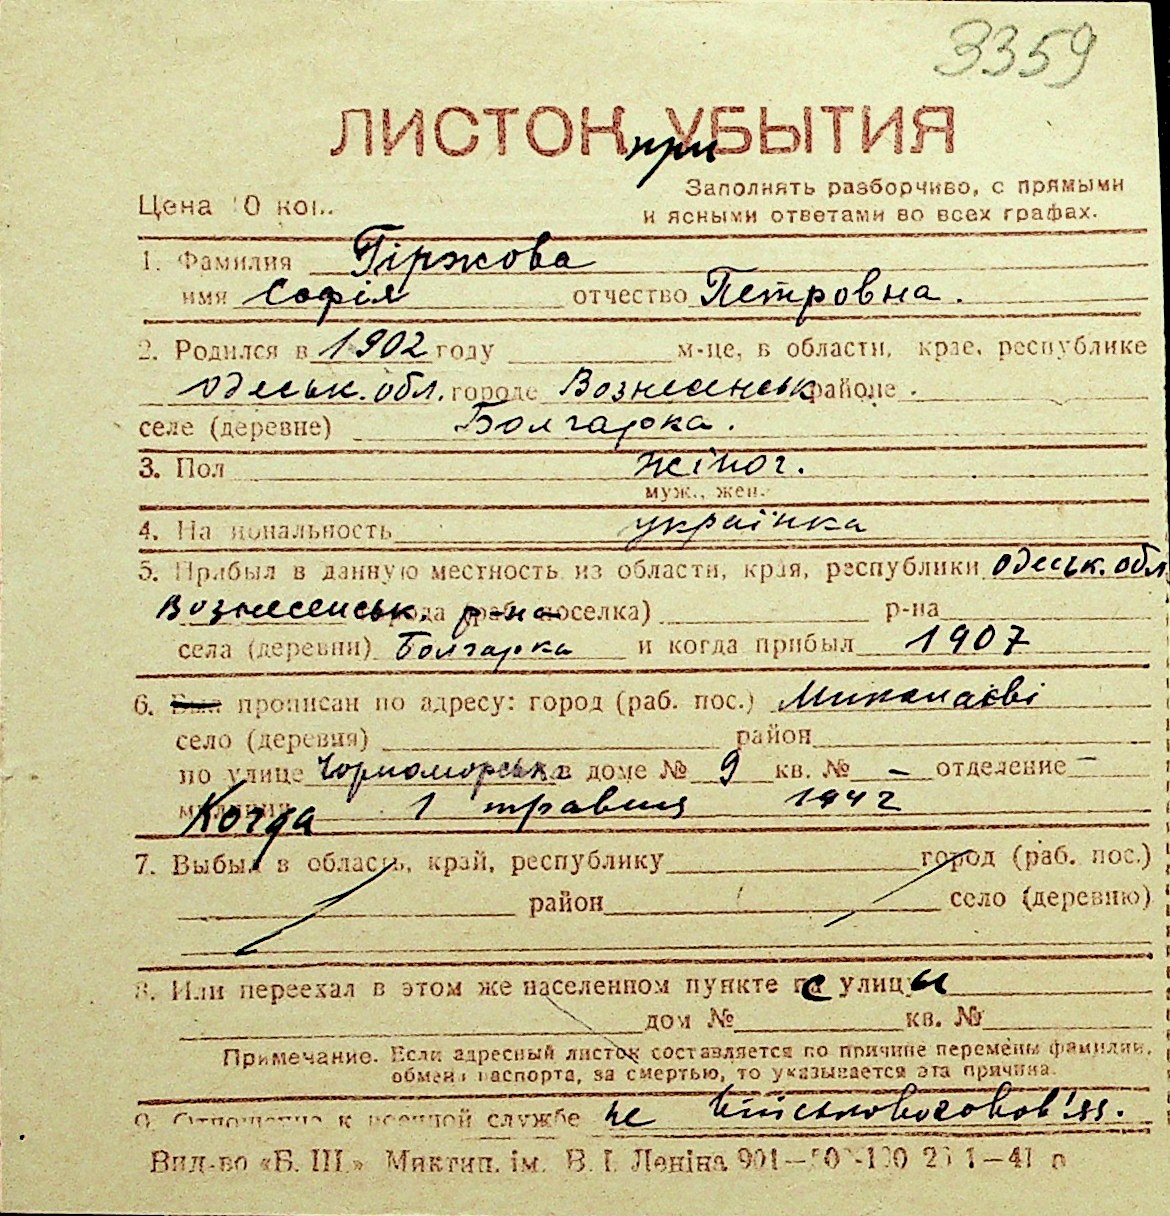 3359
ЛИСТОК УБЫТИЯ
при
Заполнять разборчиво, с прямыми
Цена 10 коп. и ясными ответами во всех графах.
1. Фамилия Гіржова
имя Софія отчество Петровна.
2. Родился в 1902 году м-це, в области, крае, республике
одеськ. обл. городе Вознесенськ районе
селе (деревне) Болгарка.
3. Пол жіноч.
муж., жен.
4. Национальность українка
5. Прибыл в данную местность из области, края, республики одеськ. обл
Вознесенськ. города р-на (раб. поселка) р-на
села (деревни) Болгарка и когда прибыл 1907
6. Был прописан по адресу: город (раб. пос.) Миколаєві
село (деревня) район
по улице Чорноморська в доме № 9 кв. № – отделение –
милиции Когда 1 травня 1942
7. Выбыл в область, край, республику город (раб. пос.)
район село (деревню)
8. Или переехал в этом же населенном пункте с улицы
дом № кв. №
Примечание. Если адресный листок составляется по причине перемены фамилии,
обмена паспорта, за смертью, то указывается эта причина.
9. Отношение к военной службе не
Вид-во «Б. Ш.» Миктип. ім. В. І. Леніна